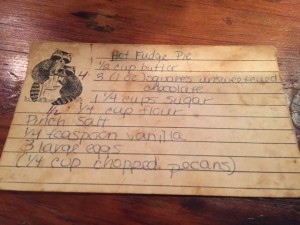 Hot Fudge Pie
1/2 cup butter
3 (1 oz) squares unsweetened
chocolate
1 1/4 cups sugar
1/4 cup flour
Pinch salt
1/4 teaspoon vanilla
3 large eggs
(1/4 cup chopped pecans)